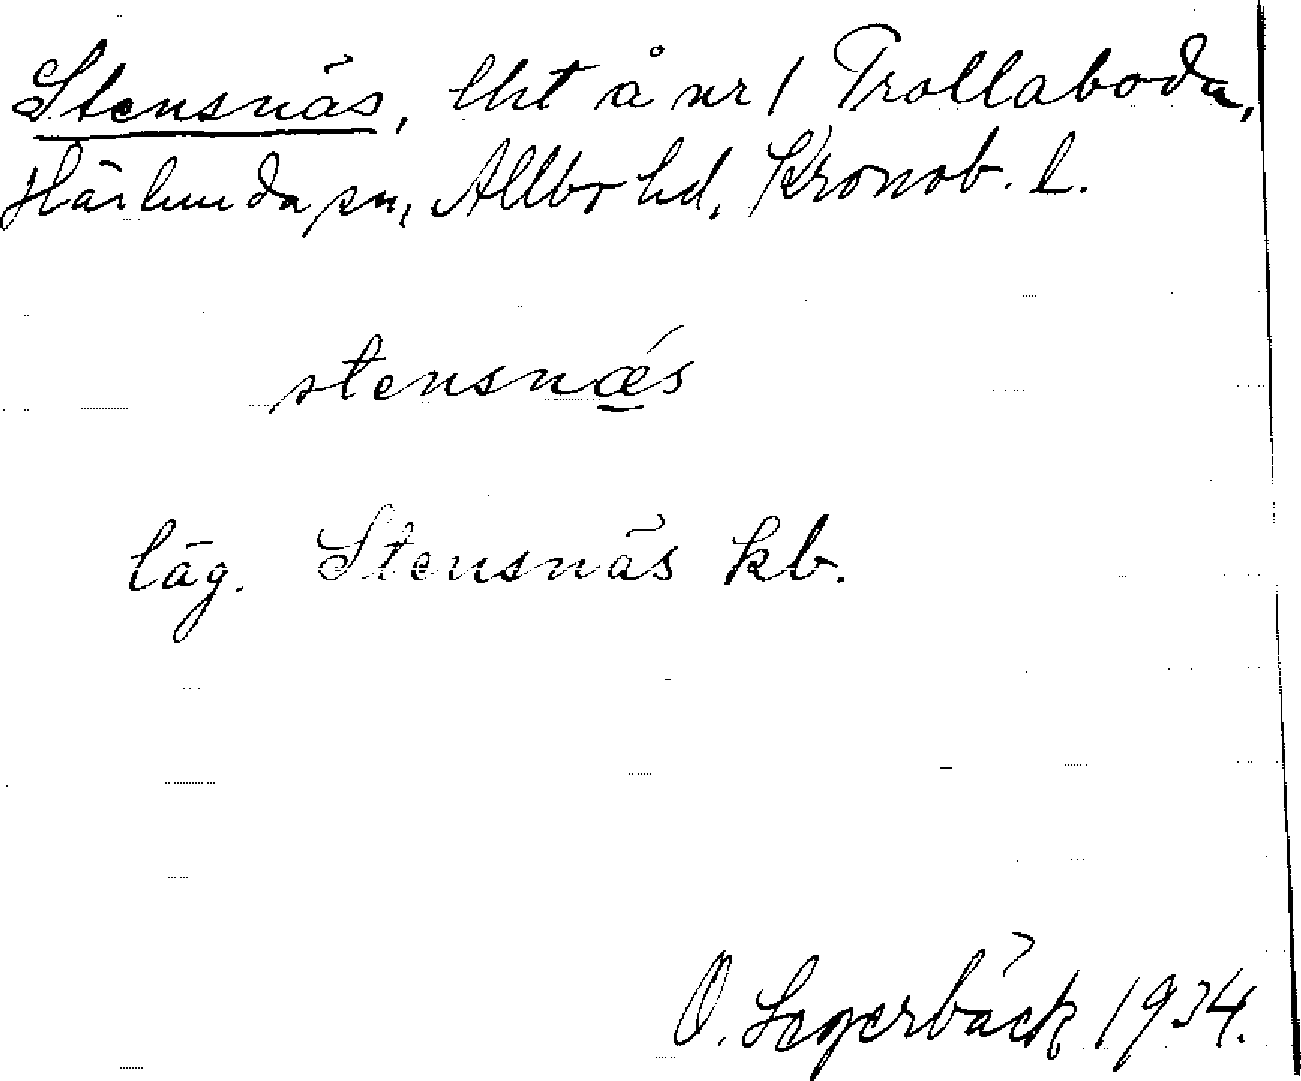 Stensnäs, lht å nr 1 Trollaboda,
Härlunda sn, Allbo hd, Kronob. l.
stensnæ´s
läg. Stensnäs kb.
O. Segerbäck 1934.